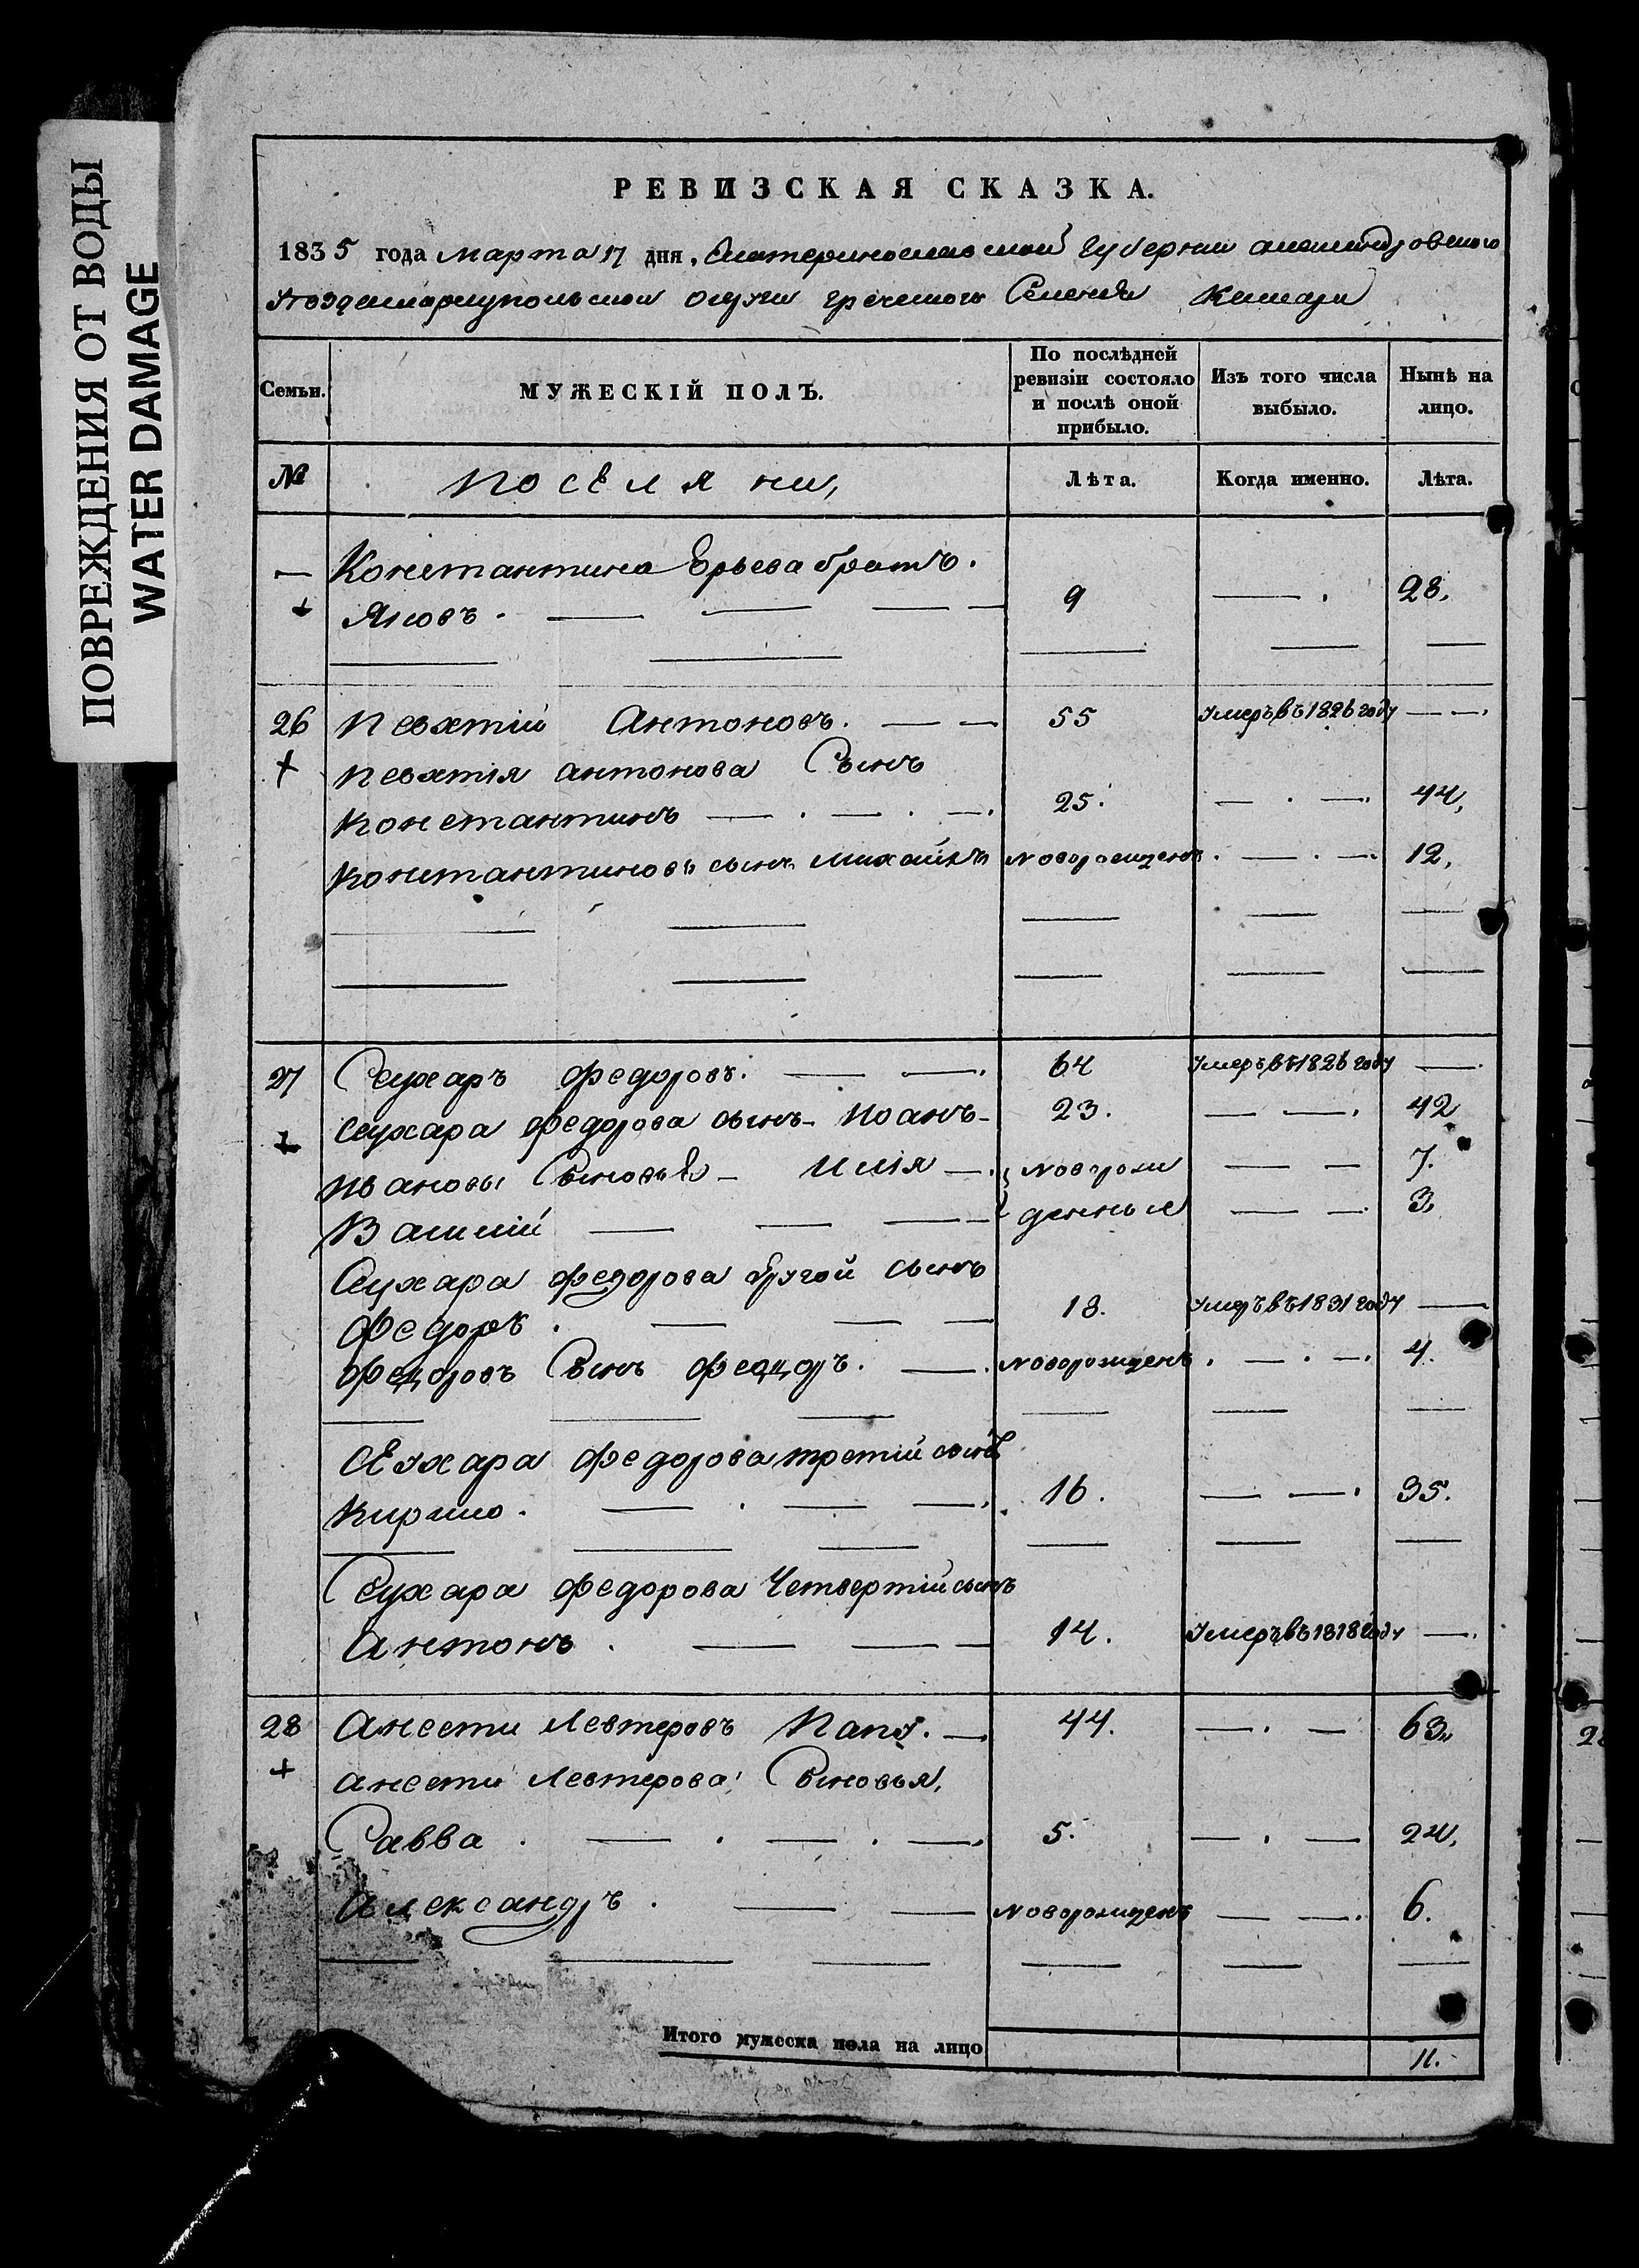 ПОВРЕЖДЕНИЯ ОТ ВОДЫ
WATER DAMAGE
РЕВИЗСКАЯ СКАЗКА.
1835 года марта 17 дня, Екатеринославской Губернии александровского
Уезда мариупольской округи греческого Селения
Семьи.
МУЖЕСКІЙ ПОЛЪ.
По послѣдней ревизіи состояло и послѣ оной прибыло.
Изъ того числа выбыло.
Нынѣ на лицо.
№ поселяни, Лѣта. Когда именно. Лѣта.
Константина Юрьева братъ.
+ Яковъ. 9 28,
26 Антоновъ. 55 Умеръ въ 1826 году
+ антонова Сынъ
Константинъ 25. 44,
Константиновъ сынъ Михайла новорожденъ. 12,
27 Сеухаръ федоровъ. 64 Умеръ въ 1826 году
+ сеухара федорова сынъ Иоанъ 23. 42
Ивановы Сыновья Илія новорож 7.
Василій денные 3,
Сеухара федорова другой сынъ
федоръ. 18. Умеръ въ 1831 году
федоровъ Сынъ федоръ. новорожденъ. 4.
сеухара федорова третій сынъ
Кирило. 16. 35.
Сеухара федорова Четвертій сынъ
Антонъ. 14. Умеръ въ 1818 году
28 Анести Левтеровъ Папу. 44. 63,
+ анести Левтерова Сыновья,
Савва. 5. 24,
Александръ. новорожденъ 6.
Итого мужеска пола на лицо 11.